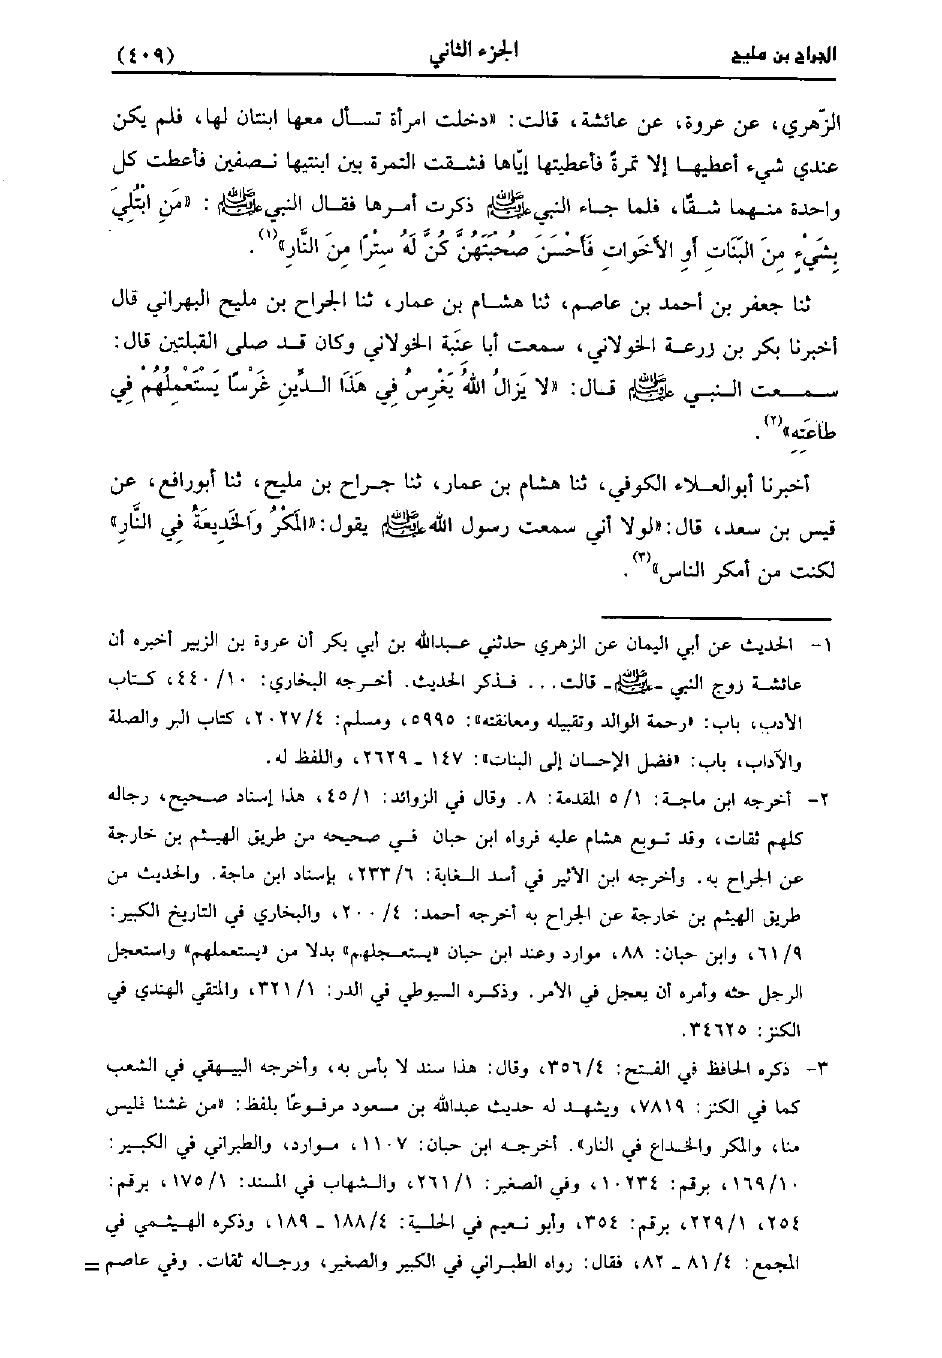 الجراح بن مليح الجزء الثاني (٤٠٩)
الزّهري، عن عروة، عن عائشة، قالت: «دخلت امرأة تسأل معها ابنتان لها، فلم يكن
عندي شيء أعطيهـا إلا تمرةً فأعطيتها إيّاها فشـقت التمرة بين ابنتيها نـصفين فأعطت كل
واحدة منـهما شـقًّا، فلما جـاء النبي ﷺ ذكرت أمـرها فقـال النبي ﷺ : «مَنِ ابْتُلِيَ
بِشَيْءٍ مِنَ البَنَاتِ أَو الأَخَوَاتِ فَأَحْسَنَ صُحْبَتَهُنَّ كُنَّ لَهُ سِتْرًا مِنَ النَّارِ»(١).
ثنا جعفر بن أحمد بن عاصم، ثنا هشـام بن عمار، ثنا الجراح بن مليح البهراني قال
أخبرنا بكر بن زرعـة الخولاني، سمعت أبا عنَبة الخولاني وكان قـد صلى القبلتين قال:
سـمـعت النـبـي ﷺ قـال: «لا يَزالُ اللهُ يَغْرِسُ فِي هَذَا الـدِّينِ غَرْسًا يَسْتَعْمِلُهُمْ فِي
طاعَتِهِ»(٢).
أخبرنا أبوالعـلاء الكوفي، ثنا هشام بن عمار، ثنا جـراح بن مليح، ثنا أبورافع، عن
قيس بن سعد، قال: «لولا أني سمعت رسول الله ﷺ يقول: «المَكْرُ وَالخَدِيعَةُ فِي النَّارِ»
لكنت من أمكر الناس»(٣).
١- الحديث عن أبي اليمان عن الزهري حدثني عبـدالله بن أبي بكر أن عروة بن الزبير أخبره أن
عائشـة زوج النبي -ﷺ- قالت... فـذكر الحديث. أخـرجه البخاري: ٤٤٠/١٠، كـتاب
الأدب، باب: «رحمة الوالد وتقبيله ومعانقته»: ٥٩٩٥، ومسلم: ٢٠٢٧/٤، كتاب البر والصلة
والآداب، باب: «فضل الإحسان إلى البنات»: ١٤٧ ـ ٢٦٢٩، واللفظ له.
٢- أخرجه ابن ماجة: ٥/١ المقدمة: ٨. وقال في الزوائد: ٤٥/١، هذا إسناد صـحيح، رجاله
كلهم ثقات، وقد تـوبع هشام عليه فرواه ابن حبان فـي صحيحه من طريق الهيثم بن خارجة
عن الجراح به. وأخرجه ابن الأثير في أسد الـغابة: ٢٣٣/٦، بإسناد ابن ماجة. والحديث من
طريق الهيثم بن خارجة عن الجراح به أخرجه أحمد: ٢٠٠/٤، والبخاري في التاريخ الكبير:
٦١/٩، وابن حبان: ٨٨، موارد وعند ابن حبان «يستعـجلهم» بدلا من «يستعملهم» واستعجل
الرجل حثه وأمره أن يعجل في الأمر. وذكـره السيوطي في الدر: ٣٢١/١، والمتقي الهندي في
الكنز: ٣٤٦٢٥.
٣- ذكره الحافظ في الفـتح: ٣٥٦/٤، وقال: هذا سند لا بأس به، وأخرجه البيـهقي في الشعب
كما في الكنز: ٧٨١٩، ويشهـد له حديث عبدالله بن مسعود مرفـوعًا بلفظ: «من غشنا فليس
منـا، والمكر والخـداع في النار». أخـرجـه ابن حبان: ١١٠٧، مـوارد، والطبراني في الكبـير:
١٦٩/١٠، برقم: ١٠٢٣٤، وفي الصغير: ٢٦١/١، والـشهاب في المسند: ١٧٥/١، برقم:
٢٥٤، ٢٢٩/١، برقم: ٣٥٤، وأبو نعيم في الحلية: ١٨٨/٤ ـ ١٨٩، وذكره الهيـثـمي في
المجمع: ٨١/٤ ـ ٨٢، فقال: رواه الطبراني في الكبير والصغير، ورجـاله ثقات. وفي عاصم =